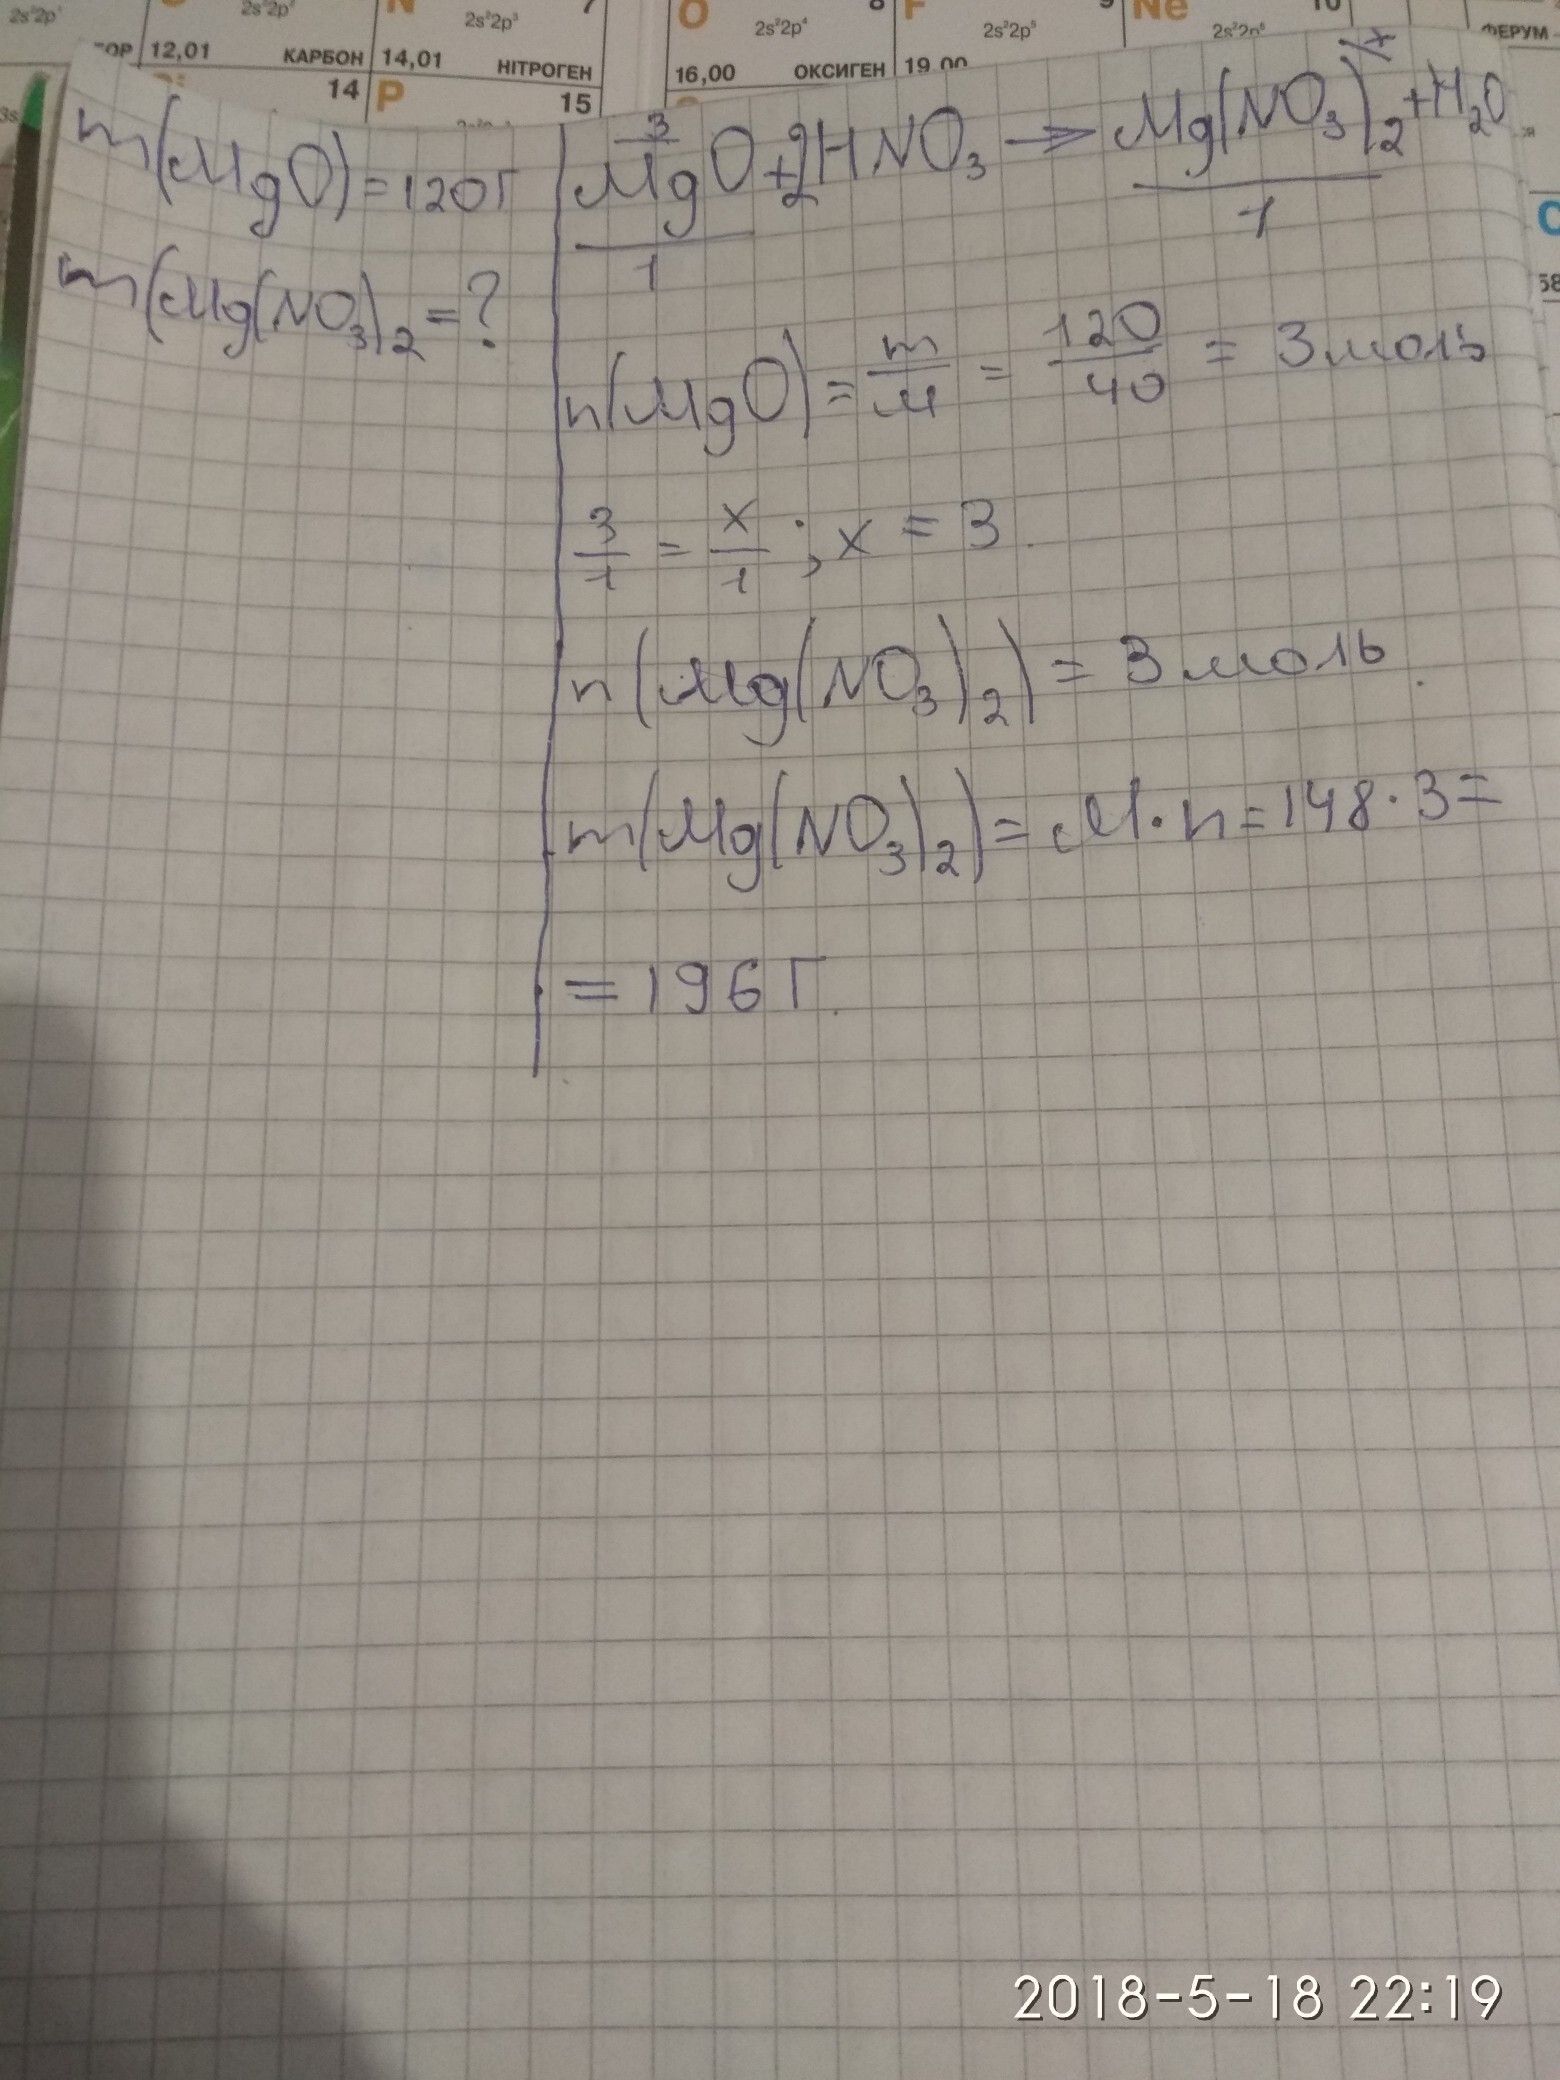 2s²2p¹ 2s²2p² N 2s²2p³ 7 O 2s²2p⁴ 8 F 2s²2p⁵ 9 Ne 2s²2p⁶ 10
ОР 12,01 КАРБОН 14,01 НІТРОГЕН 16,00 ОКСИГЕН 19,00 ФЕРУМ
14 P 15
3s
58
m(MgO)=120г
m(Mg(NO₃)₂=?
3 x
MgO+2HNO₃→Mg(NO₃)₂+H₂O
1 1
n(MgO)=m/M=120/40=3моль
3/1=x/1; x=3.
n(Mg(NO₃)₂)=3моль.
m(Mg(NO₃)₂)=M·n=148·3=
=196г.
2018-5-18 22:19